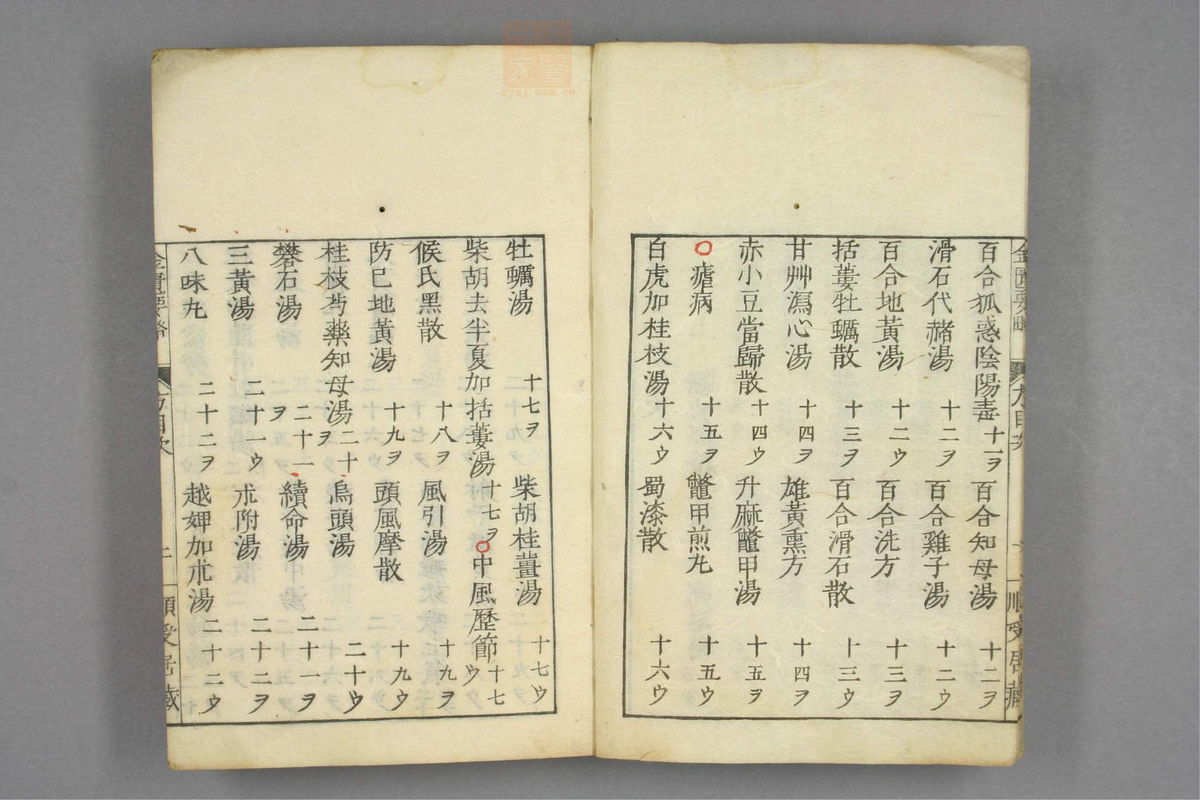 百合狐惑陰陽毒 十一ヲ 百合知母湯 十二ヲ
滑石代赭湯 十二ヲ 百合雞子湯 十二ウ
百合地黃湯 十二ウ 百合洗方 十三ヲ
括蔞牡蠣散 十三ヲ 百合滑石散 十三ウ
甘艸瀉心湯 十四ヲ 雄黃熏方 十四ヲ
赤小豆當歸散 十四ウ 升麻鼈甲湯 十五ヲ
〇瘧病 十五ヲ 鼈甲煎丸 十五ウ
白虎加桂枝湯 十六ウ 蜀漆散 十六ウ
牡蠣湯 十七ヲ 柴胡桂薑湯 十七ウ
柴胡去半夏加括蔞湯 十七ヲ 〇中風歷節 十七ウ
候氏黑散 十八ヲ 風引湯 十九ヲ
防已地黃湯 十九ヲ 頭風摩散 十九ウ
桂枝芍藥知母湯 二十ヲ 烏頭湯 二十ウ
礬石湯 二十一ヲ 續命湯 二十一ヲ
三黃湯 二十一ウ 朮附湯 二十二ヲ
八味丸 二十二ヲ 越婢加朮湯 二十二ウ
金匱要略 方目次 二 順受居藏
zysj.com.cn